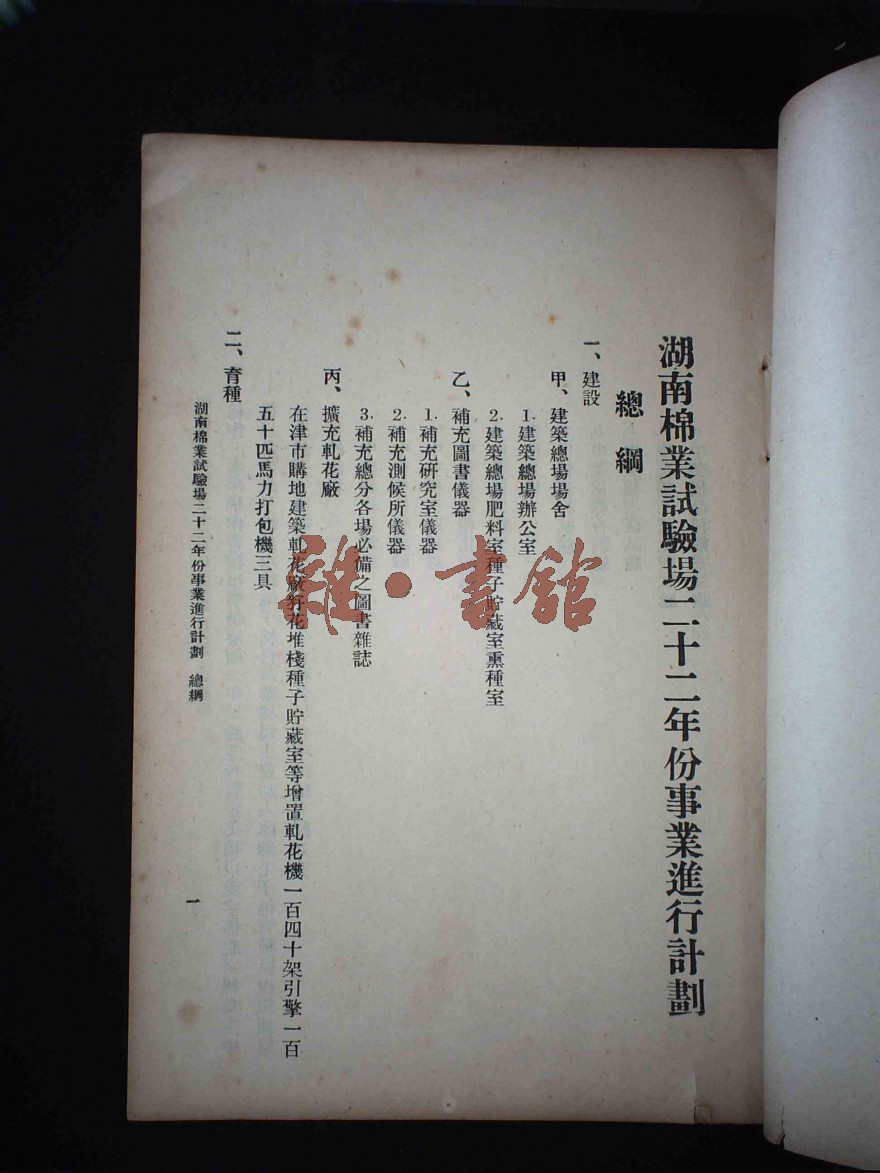 湖南棉業試驗場二十二年份事業進行計劃
總綱
一、建設
甲、建築總場場舍
1.建築總場辦公室
2.建築總場肥料室種子貯藏室熏種室
乙、補充圖書儀器
1.補充研究室儀器
2.補充測候所儀器
3.補充總分各場必備之圖書雜誌
丙、擴充軋花廠
在津市購地建築軋花廠籽花堆棧種子貯藏室等增置軋花機一百四十架引擎一百
五十匹馬力打包機三具
二、育種
湖南棉業試驗場二十二年份事業進行計劃 總綱
一
雜·書館